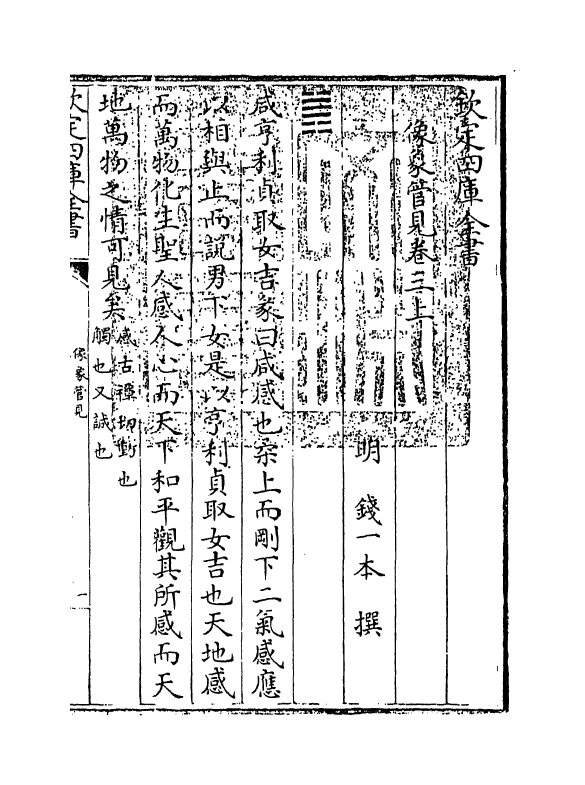 欽定四庫全書
像象管見卷三上
明 錢一本 撰
䷞
咸亨利貞取女吉彖曰咸感也柔上而剛下二氣感應
以相與止而說男下女是以亨利貞取女吉也天地感
而萬物化生聖人感人心而天下和平觀其所感而天
地萬物之情可見矣
感古禫切動也
觸也又誠也
欽定四庫全書
像象管見
一